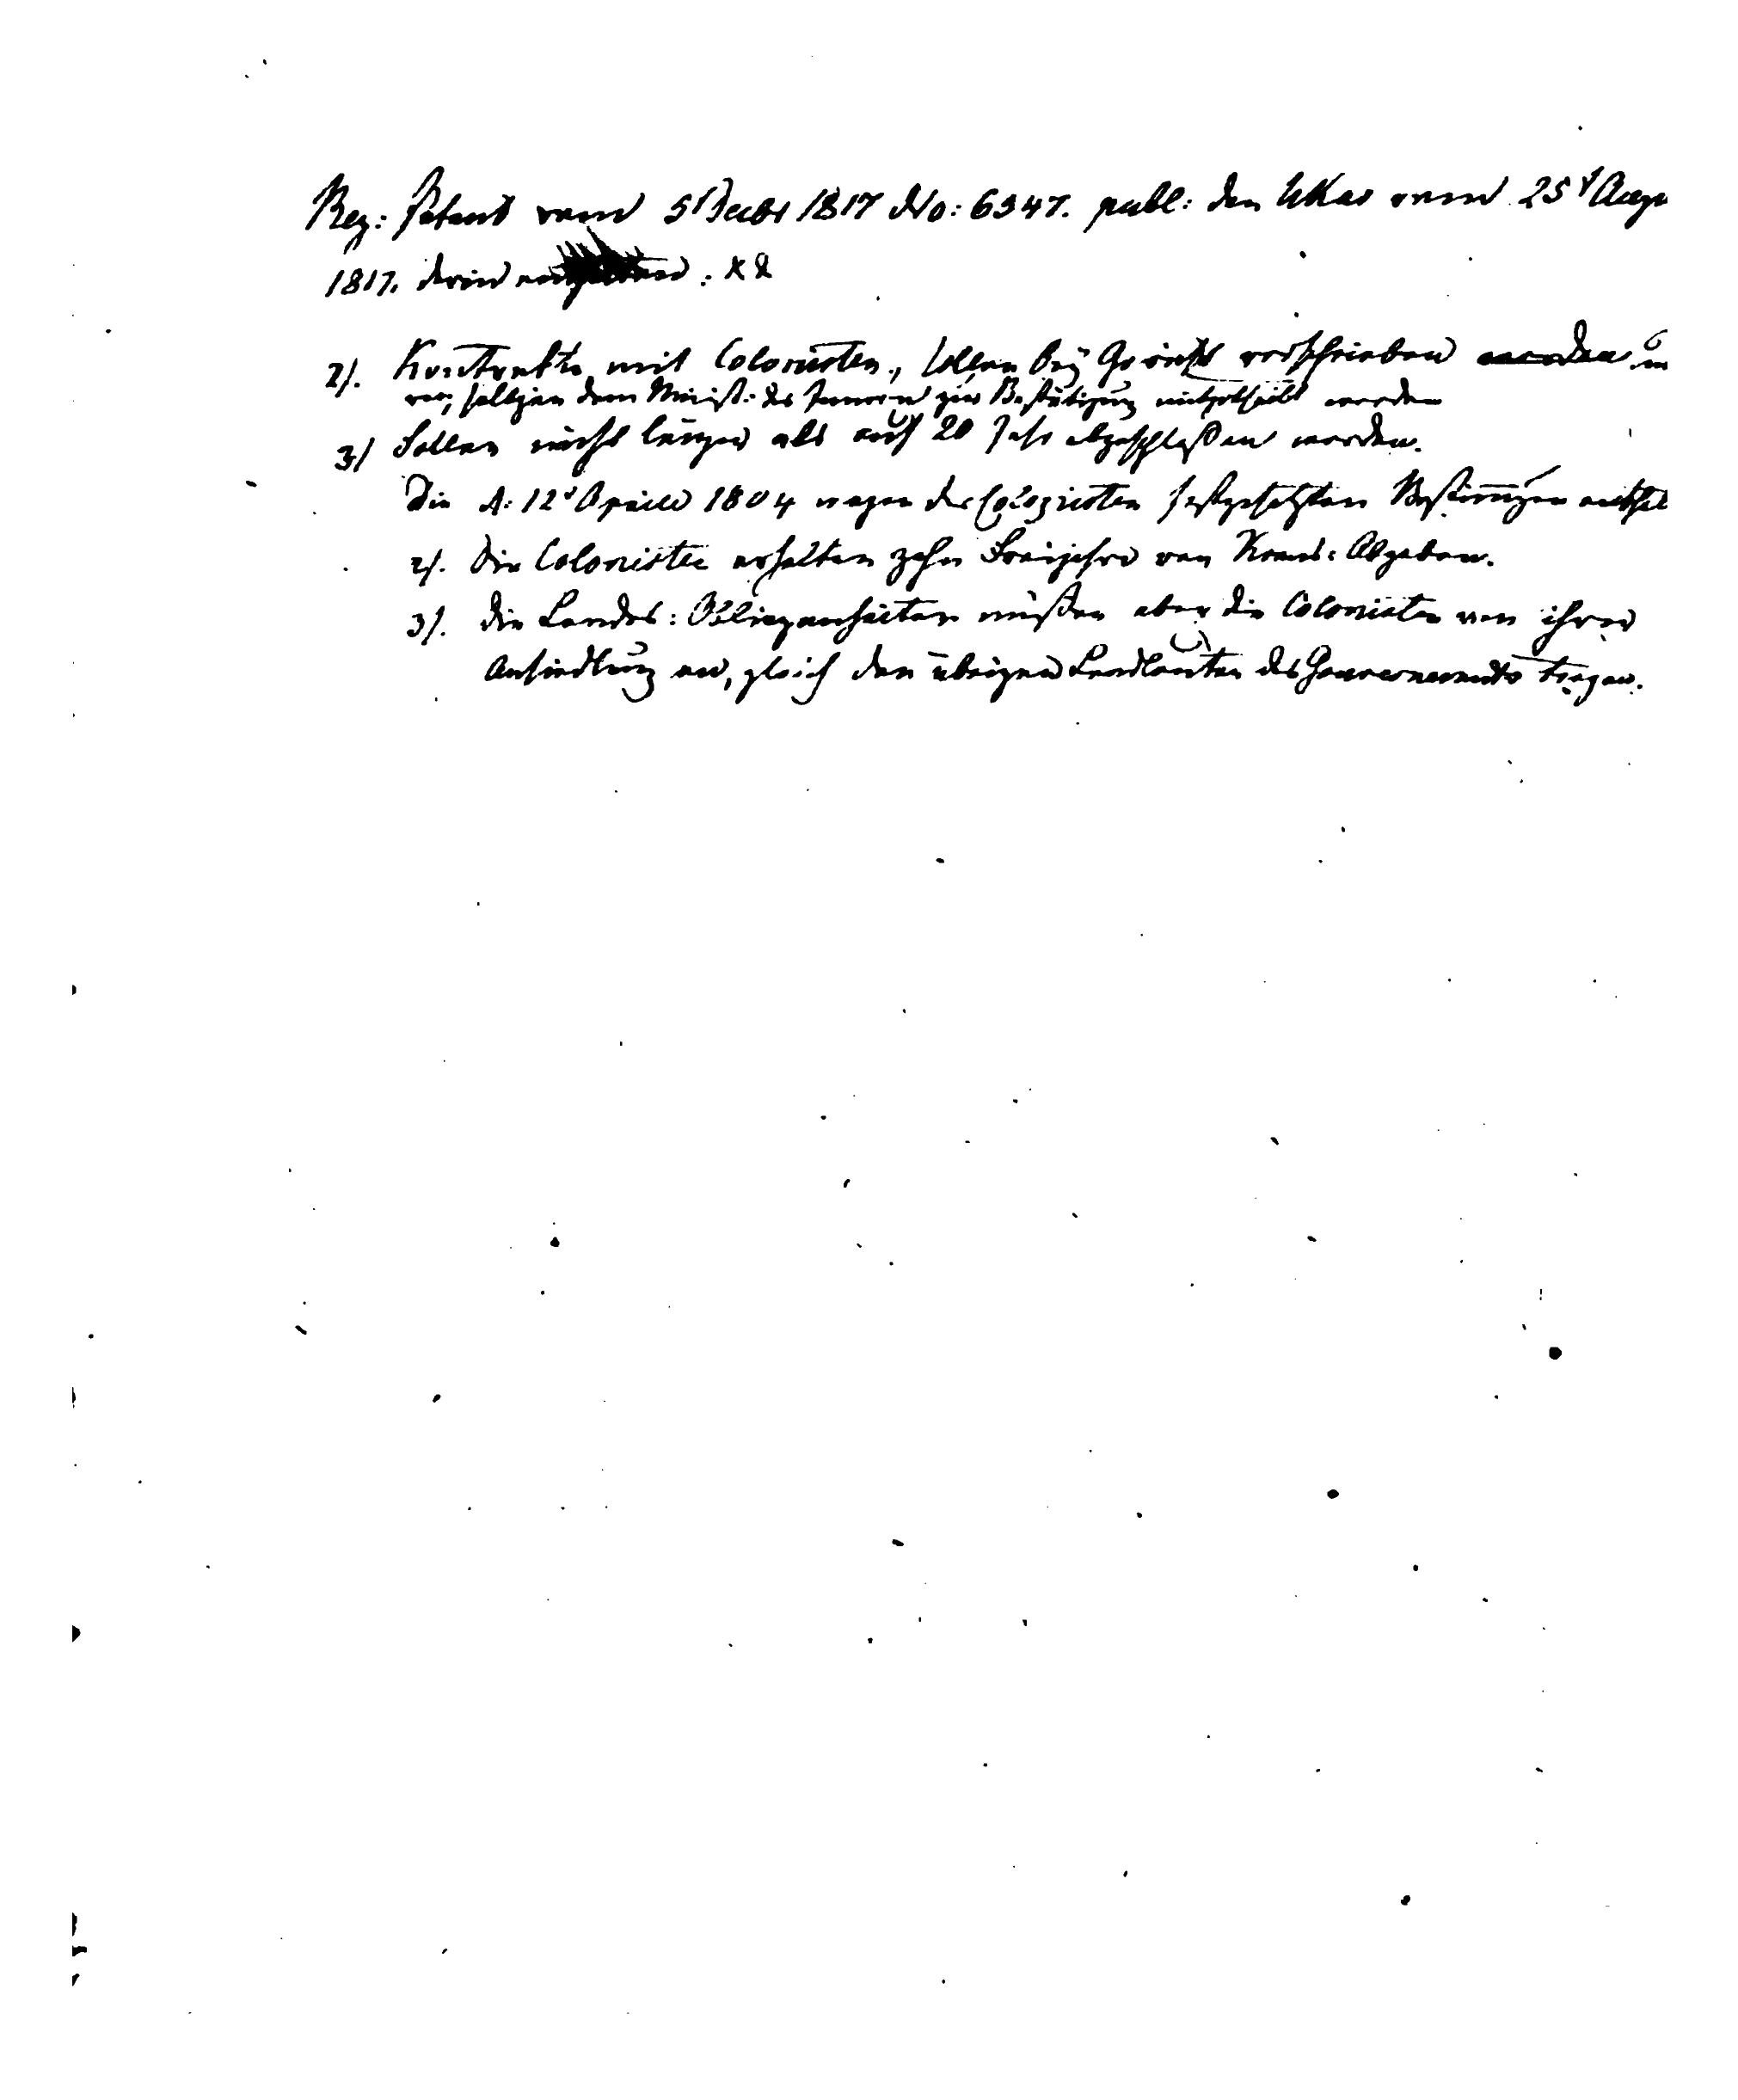 Reg: Patent vom 5t Decbr 1817 No: 6347. publ: den Ukas vom 25t Aug
1817. darin
2). Kontrakte mit Colonisten, sollen bey Gericht verschrieben werden u
von selbigen dem Minist: des Innern zur Bestätigung mitgetheilt werden
3) Sollen nicht länger als auf 20 Jahr abgeschloßen werden.
Die d: 12t Aprill 1804 wegen der Colonisten festgesetzten Bestimungen
2). Die Colonisten erhalten zehn Freijahre von Krons: Abgaben.
3). die Landes: Obliegenheiten müßen aber die Colonisten von ihrer
Ansiedlung an, gleich den übrigen Landleuten des Gouvernements tragen.